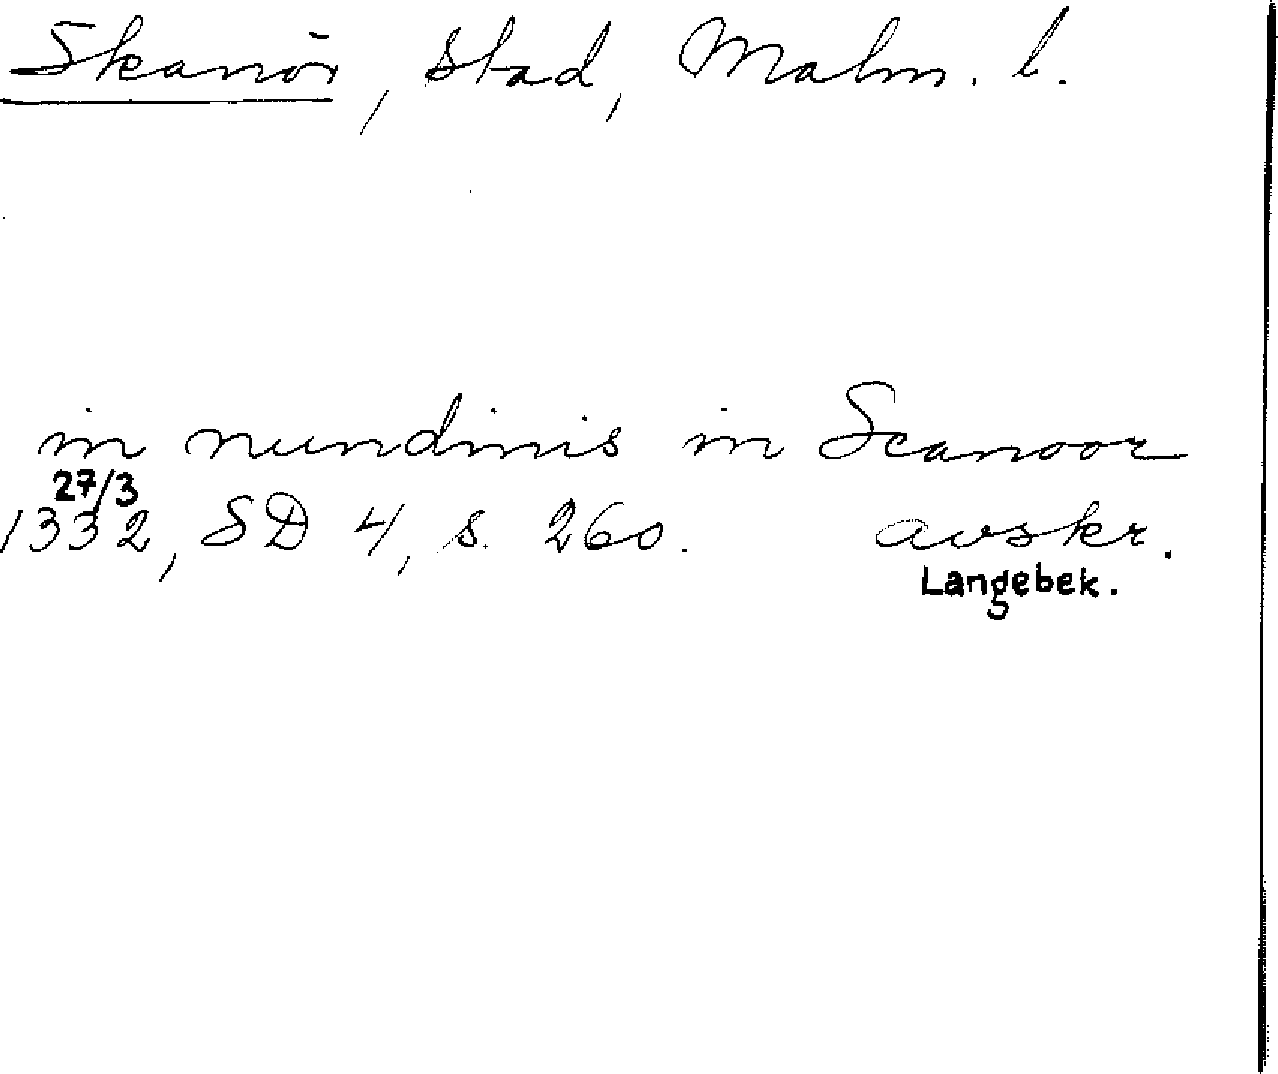 Skanör, stad, Malm. l.
in nundinis in Scanoor
27/3
1332, SD 4, s. 260. avskr.
Langebek.